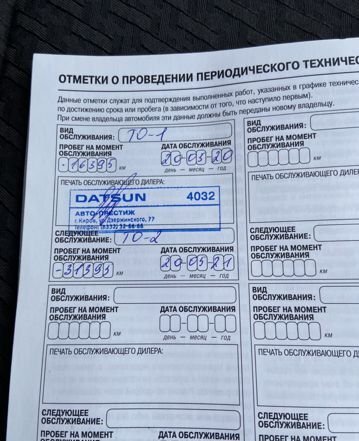 ОТМЕТКИ О ПРОВЕДЕНИИ ПЕРИОДИЧЕСКОГО ТЕХНИЧЕС
Данные отметки служат для подтверждения выполненных работ, указанных в графике техничес
по достижению срока или пробега (в зависимости от того, что наступило первым).
При смене владельца автомобиля эти данные должны быть переданы новому владельцу.
ВИД ОБСЛУЖИВАНИЯ: ТО-1
ПРОБЕГ НА МОМЕНТ ОБСЛУЖИВАНИЯ
-16395 км
ДАТА ОБСЛУЖИВАНИЯ
20-03-20
день — месяц — год
ПЕЧАТЬ ОБСЛУЖИВАЮЩЕГО ДИЛЕРА:
DATSUN 4032
АВТО-ПРЕСТИЖ
г. Киров, ул. Дзержинского, 77
телефон: (8332)
СЛЕДУЮЩЕЕ ОБСЛУЖИВАНИЕ: ТО-2
-31395 км
ДАТА ОБСЛУЖИВАНИЯ
20-03-21
день — месяц — год
ВИД ОБСЛУЖИВАНИЯ:
ПРОБЕГ НА МОМЕНТ ОБСЛУЖИВАНИЯ
км
ДАТА ОБСЛУЖИВАНИЯ
день — месяц — год
ПЕЧАТЬ ОБСЛУЖИВАЮЩЕГО ДИЛЕРА:
СЛЕДУЮЩЕЕ ОБСЛУЖИВАНИЕ:
ПРОБЕГ НА МОМЕНТ
ДАТА ОБСЛУЖИВАНИЯ
ВИД ОБСЛУЖИВАНИЯ:
ПРОБЕГ НА МОМЕНТ ОБСЛУЖИВАНИЯ
км
ПЕЧАТЬ ОБСЛУЖИВАЮЩЕГО ДИЛЕРА:
СЛЕДУЮЩЕЕ ОБСЛУЖИВАНИЕ:
ПРОБЕГ НА МОМЕНТ ОБСЛУЖИВАНИЯ
км
ВИД ОБСЛУЖИВАНИЯ:
ПРОБЕГ НА МОМЕНТ ОБСЛУЖИВАНИЯ
км
ПЕЧАТЬ ОБСЛУЖИВАЮЩЕГО Д
СЛЕДУЮЩЕЕ ОБСЛУЖИВАНИЕ:
ПРОБЕГ НА МОМЕНТ